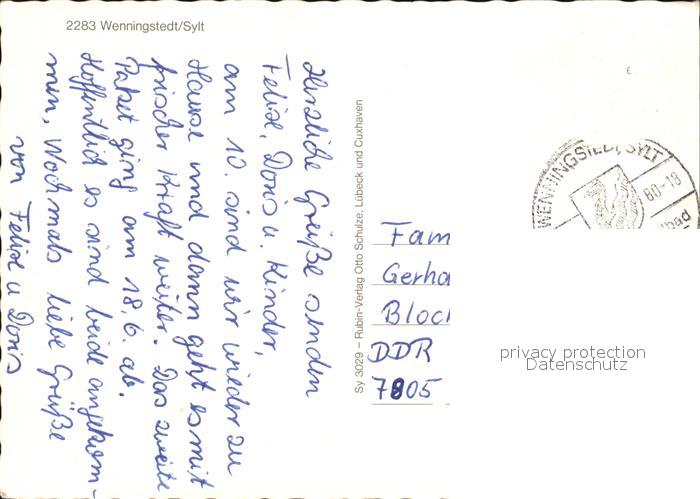 2283 Wenningstedt/Sylt
Herzliche Grüße senden
Felix, Doris u. Kinder,
am 10. sind wir wieder zu
Hause und dann geht es mit
frischer Kraft weiter. Das zweite
Paket ging am 18.6. ab.
Hoffentlich es sind beide angekom-
men, Nochmals liebe Grüße
von Felix u Doris
Sy 3029 – Rubin-Verlag Otto Schulze, Lübeck und Cuxhaven
WENNINGSTEDT, SYLT
80-18
bad
Fam
Gerha
Bloc
DDR
7805
privacy protection
Datenschutz